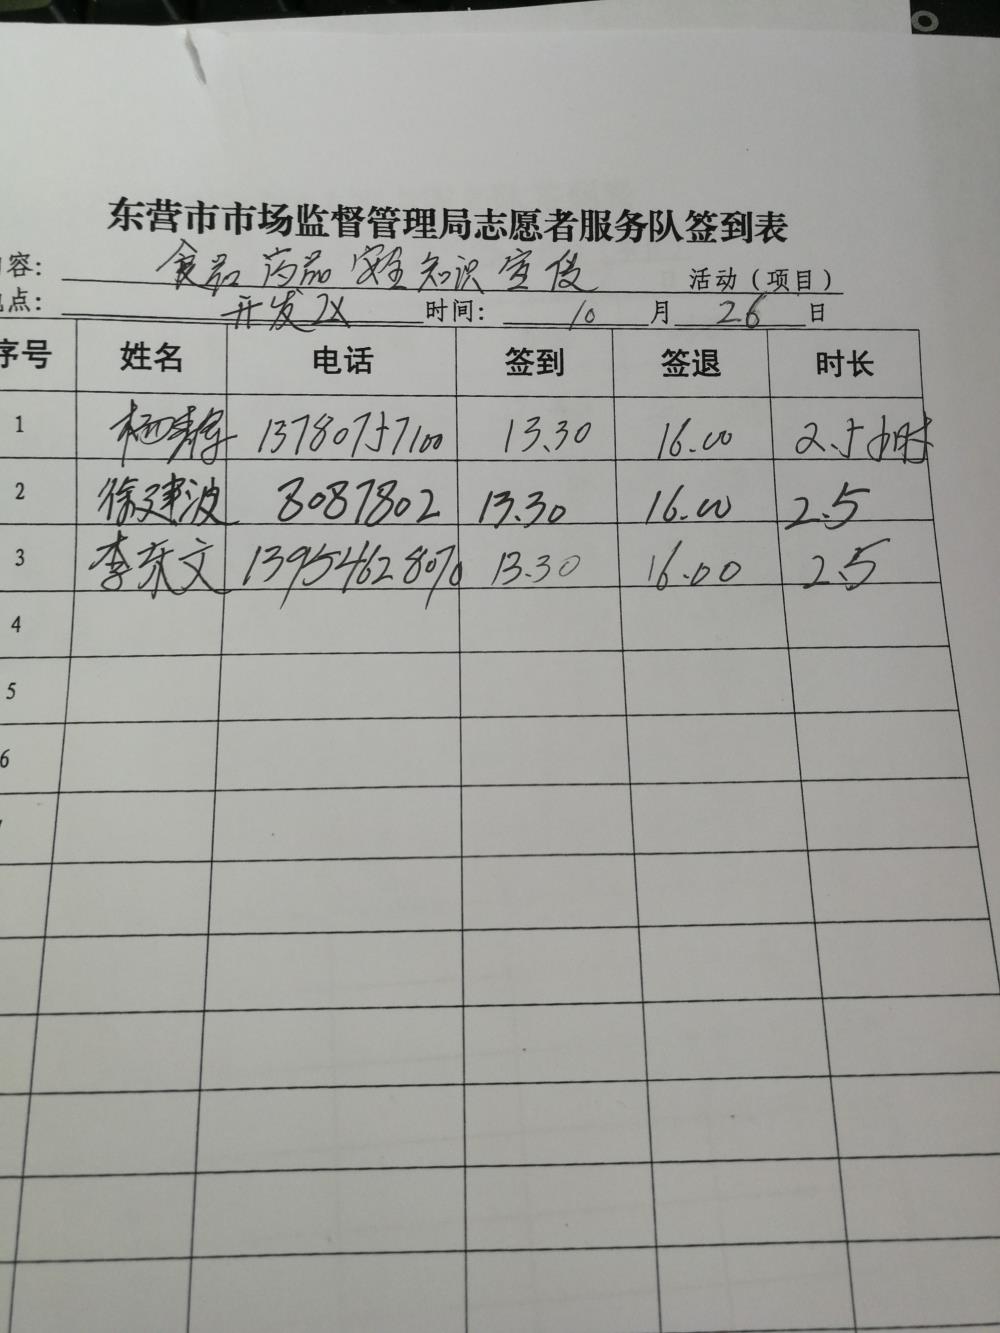 东营市市场监督管理局志愿者服务队签到表
容: 食品药品安全知识宣传 活动（项目）
点: 开发区 时间: 10 月 26 日
序号 姓名 电话 签到 签退 时长
1 杨静 13780757100 13.30 16.00 2.5小时
2 徐建波 8087802 13.30 16.00 2.5
3 李东文 13954628070 13.30 16.00 2.5
4
5
6